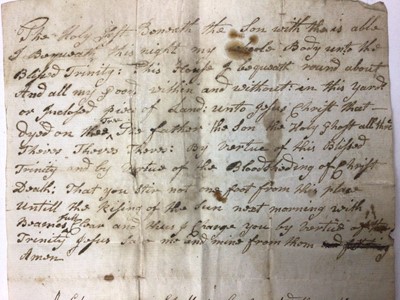 The Holy Gost Beneath the Son with this able
I Bequeath this night my Whole Body unto the
Blised Trinity: This House I bequeath round about
And all my Good within and without: in this yard
or Inclosed Pice of Land: unto Jesus Christ that
dyed on thee Tree father the Son the Holy Ghost all three
Theves Theves Theves: By Vertue of this Blised
Trinity and by Vertue of the Bloodsheding of Christ
Death: That you Stir not one foot from this place
Untill the Rising of the Sun next morning with
Beams full Clear and this I Charge you by Vertue of the
Trinity Jesus Save me and mine from them
Amen